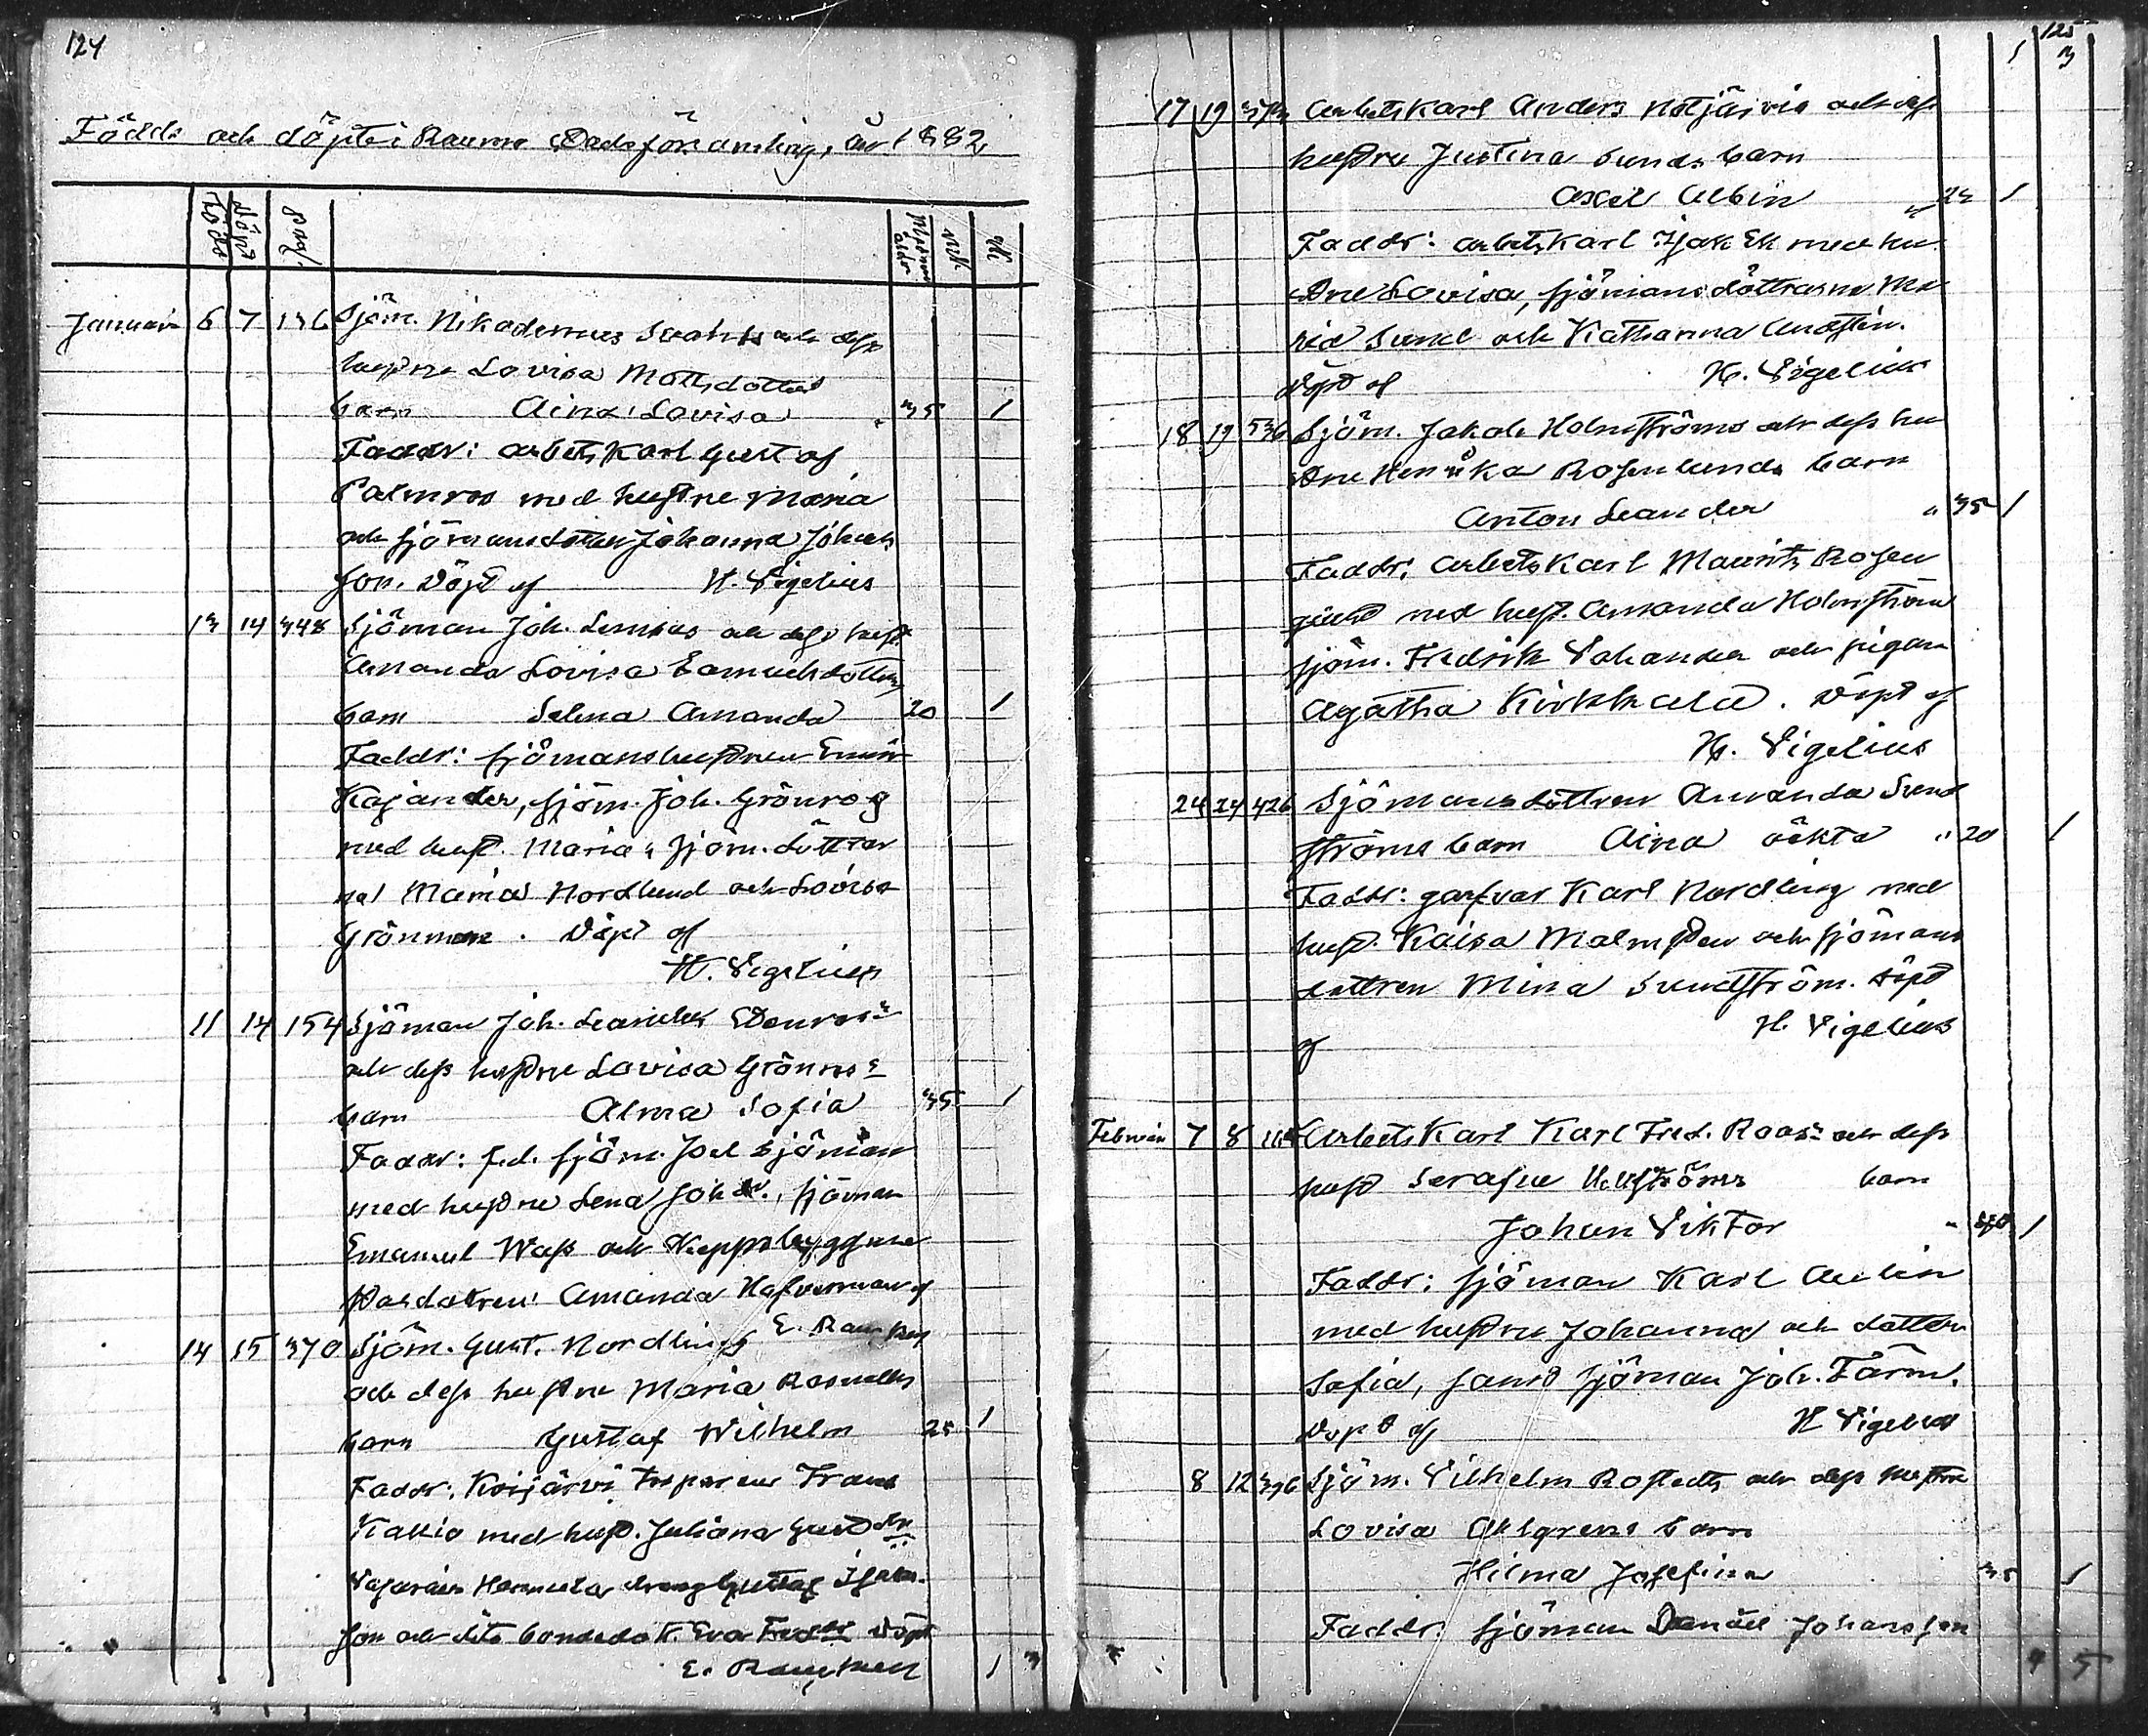 124
Födde och döpte i Raumo Stadsförsamling, år 1882,
Född Döpt pag. Modrens ålder mk qk
Januari 6 7 136 Sjöm. Nikodemus Svahns och dess
hustru Lovisa Mattsdotters
barn Aina Lovisa 35 1
Faddr: arbets Karl Gustaf
Palmros med hustru Maria
och sjömansdottren Johanna Johans
son. Döpt af H. Vigelius
13 14 348 Sjöman Joh. och dess hust.
Amanda Lovisa Samuelsdotters
barn Selma Amanda 20 1
Faddr: sjömanshustrun
Kajander, sjöm. Joh. Grönroos
med hust. Maria, sjöm. döttrar
na Maria Nordlund och Lovisa
Grönman. Döpt af
H. Vigelius
11 14 154 Sjöman Joh. Leander
och dess hustru Lovisa Grönroos
barn Alma Sofia 35 1
Faddr: f.d. sjöm. Joel Sjöman
med hustru Lena Joh. dr., sjöman
Emanuel Wass och Skeppsbyggmä
stardottren Amanda af
E.
14 15 370 Sjöm. Gust. Nordlings
och dess hustru Maria Rosnells
barn Gustaf Wilhelm 25 1
Faddr: Koijärvi torparen Frans
Kallio med hust. Juliana Gust dtr
dräng Gustaf
son och dito bondedott. Eva döpt
E. 1 3
125
1 3
17 19 373 Arbets Karl Anders och dess
hustru Justina Sunds barn
Axel Albin " 24 1
Faddr: arbets Karl Isak Ek med hu
stru Lovisa, sjömansdöttrarne Ma
ria Sund och Katharina
Döpt af H. Vigelius
18 19 536 Sjöm. Jakob Holmströms och dess hu
stru Henrika Rosenlunds barn
Anton Leander " 35 1
Faddr: arbets Karl Mauritz Rosen
med hust. Amanda Holmström
sjöm. Fredrik och pigan
Agatha Kirkkala. Döpt af
H. Vigelius
24 24 426 Sjömansdottren Amanda Sund
ströms barn Aina oäkta " 20 1
Faddr: garfvar Karl Nordling med
hust. Kaisa Malmsten och sjömans
dottren Mina Sundström. döpt
af H. Vigelius
Februari 7 8 Arbets Karl Karl Fred. Roos: och dess
hust Serafia Hellströms barn
Johan Viktor " 40 1
Faddr: sjöman Karl Aulin
med hustru Johanna och dotter
Sofia, samt sjöman Joh. Färm.
Döpt af H Vigelius
8 12 396 Sjöm. Vilhelm Rostedts och dess hustru
Lovisa Ahlgrens barn
Hilma Josefina 35 1
Faddr: sjöman Daniel Johansson
4 5